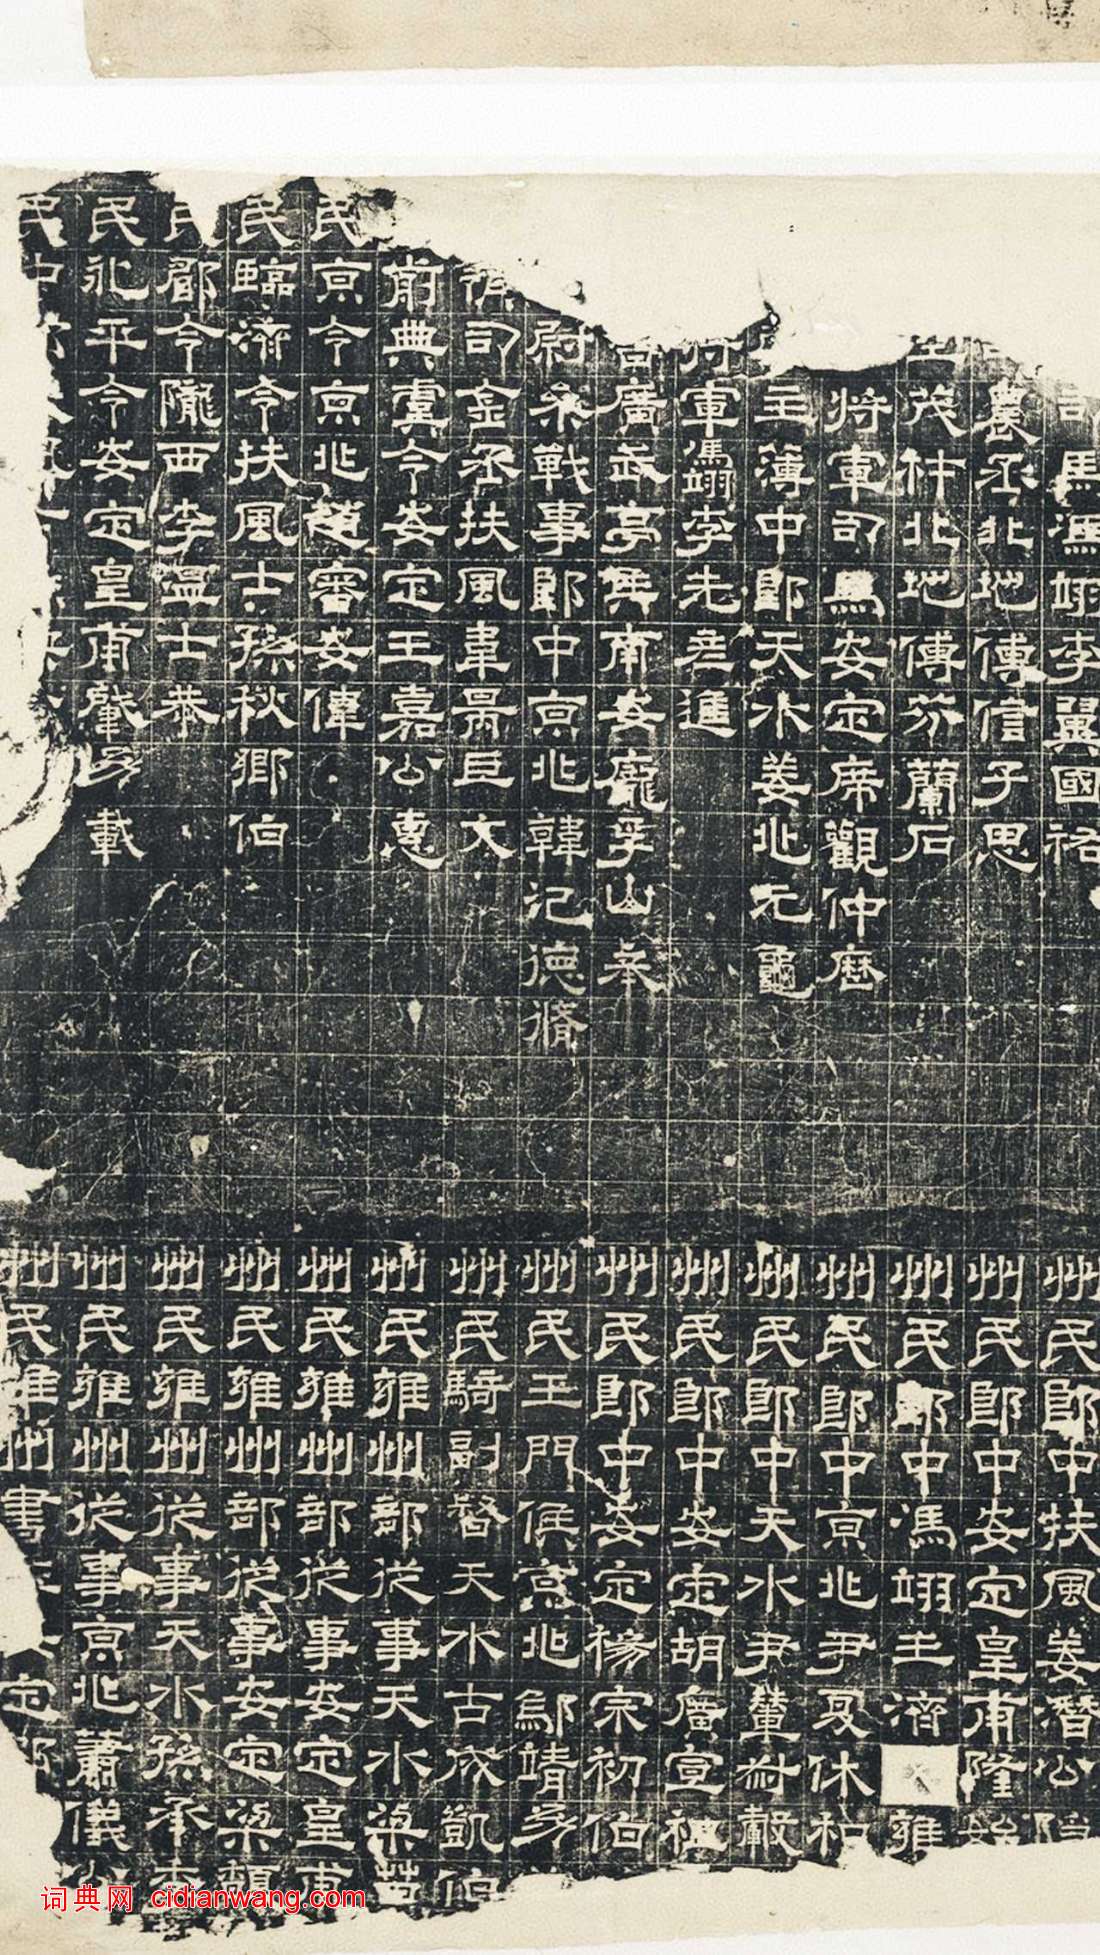 馮翊李翼國祐
農丞北地傅信子思
茂才北地傅芬蘭石
將軍司馬安定席觀仲歷
主薄中郎天水姜兆元龜
軍馮翊李先彦進
廣武亭侯南安龐孚山奉
尉叅戰事郎中京兆韓記德脩
司金丞扶風韋昺巨文
前典虞令安定王嘉公惠
民京令京兆趙審安偉
民臨濟令扶風士孫秋鄉伯
民郿令隴西李溫士恭
民永平令安定皇甫肇幼載
民中
州民郎中扶風姜潛公隱
州民郎中安定皇甫隆始
州民郎中馮翊王濟 雍
州民郎中京兆尹夏休和
州民郎中天水尹輦叔轂
州民郎中安定胡廣宣祖
州民郎中安定楊宗初伯
州民玉門侯京兆鄔靖幼
州民騎副督天水古成凱伯
州民雍州部從事天水梁苗
州民雍州部從事安定皇甫
州民雍州部從事安定梁馥
州民雍州從事天水孫承
州民雍州從事京兆蕭儀
州民雍州書
词典网 cidianwang.com